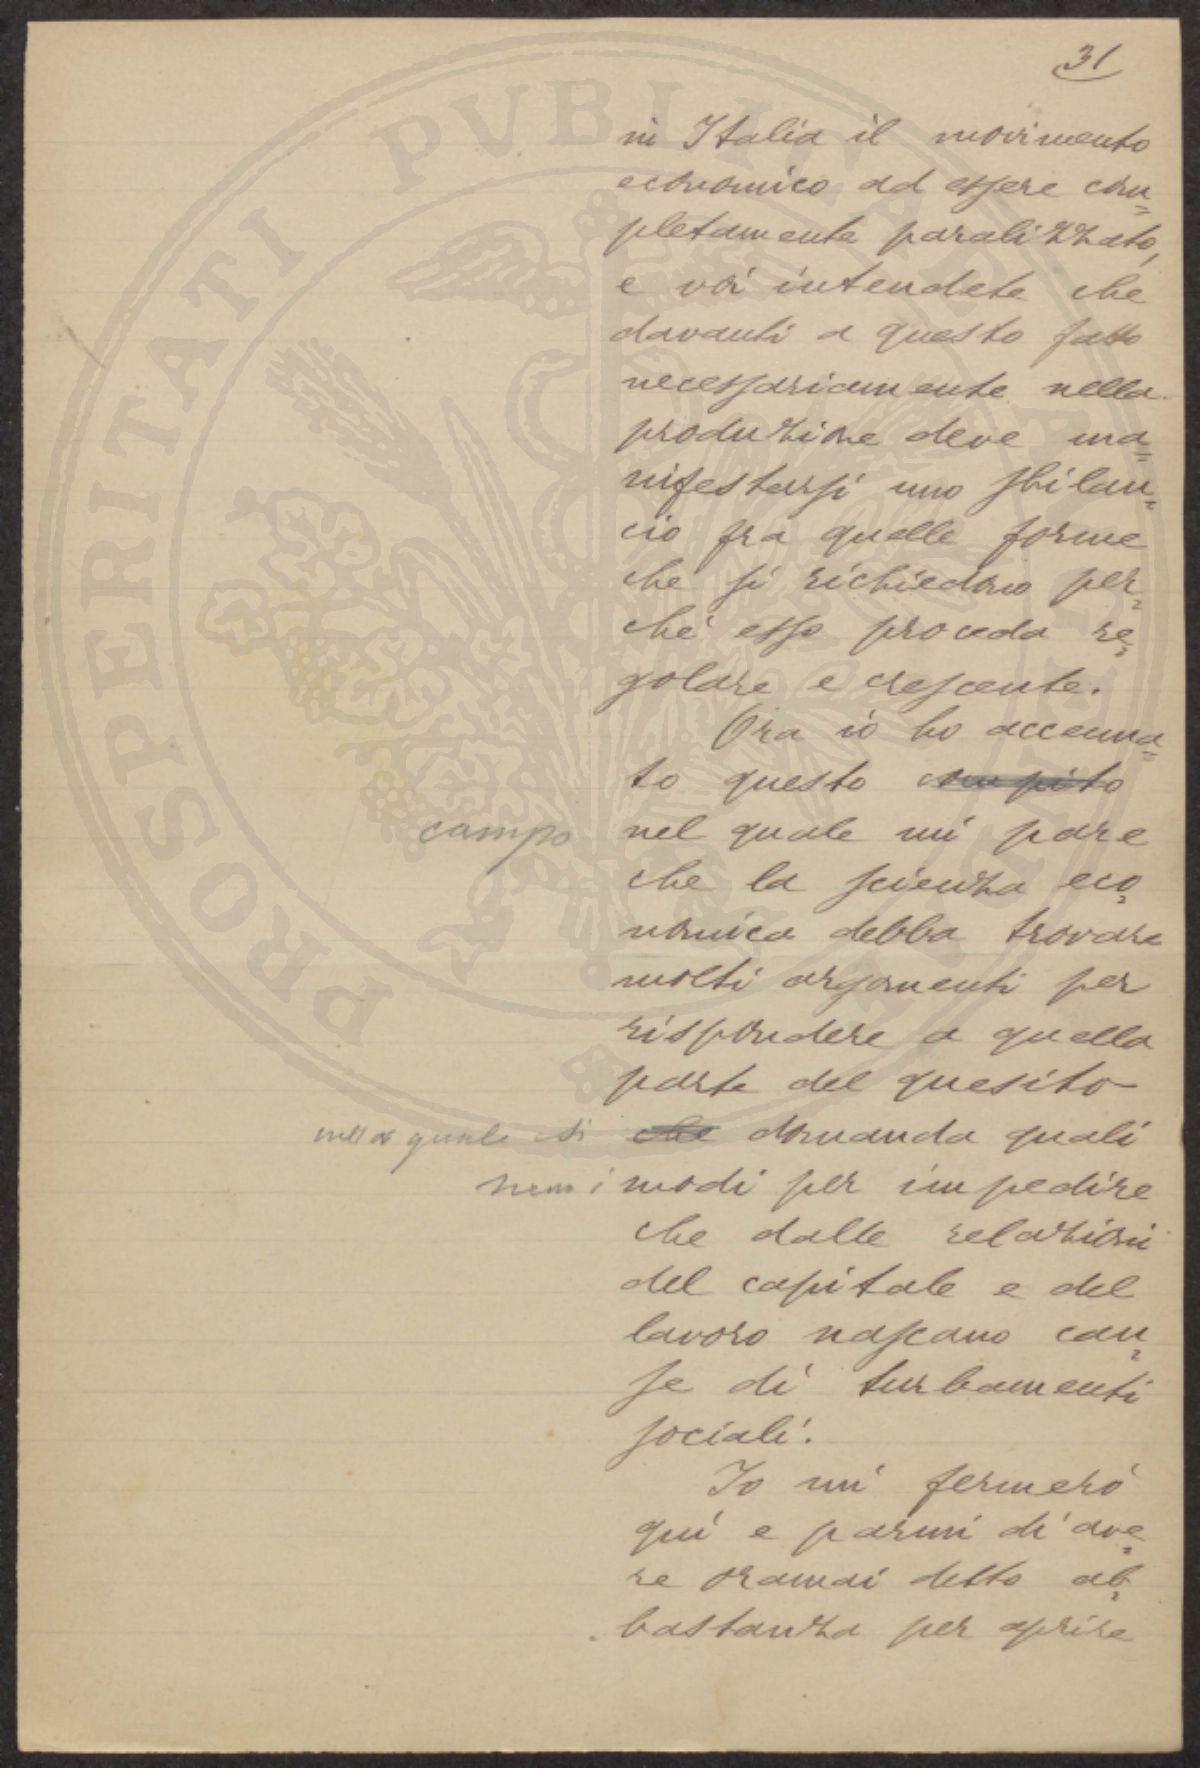 31
in Italia il movimento
economico ad essere com=
pletamente paralizzato,
e voi intendete che
davanti a questo fatto
necessariamente nella
produzione deve ma=
nifestarsi uno sbilan=
cio fra quelle forme
che si richiedono per=
ché esso proceda re=
golare e crescente.
Ora io ho accenna=
to questo compito
campo nel quale mi pare
che la scienza eco=
nomica debba trovare
molti argomenti per
rispondere a quella
parte del quesito
nella quale si che domanda quali
i modi per impedire
che dalle relazioni
del capitale e del
lavoro nascano cau=
se di turbamenti
sociali.
Io mi fermerò
qui e parmi di ave=
re oramai detto ab=
bastanza per aprire
PROSPERITATI PVBLICAE